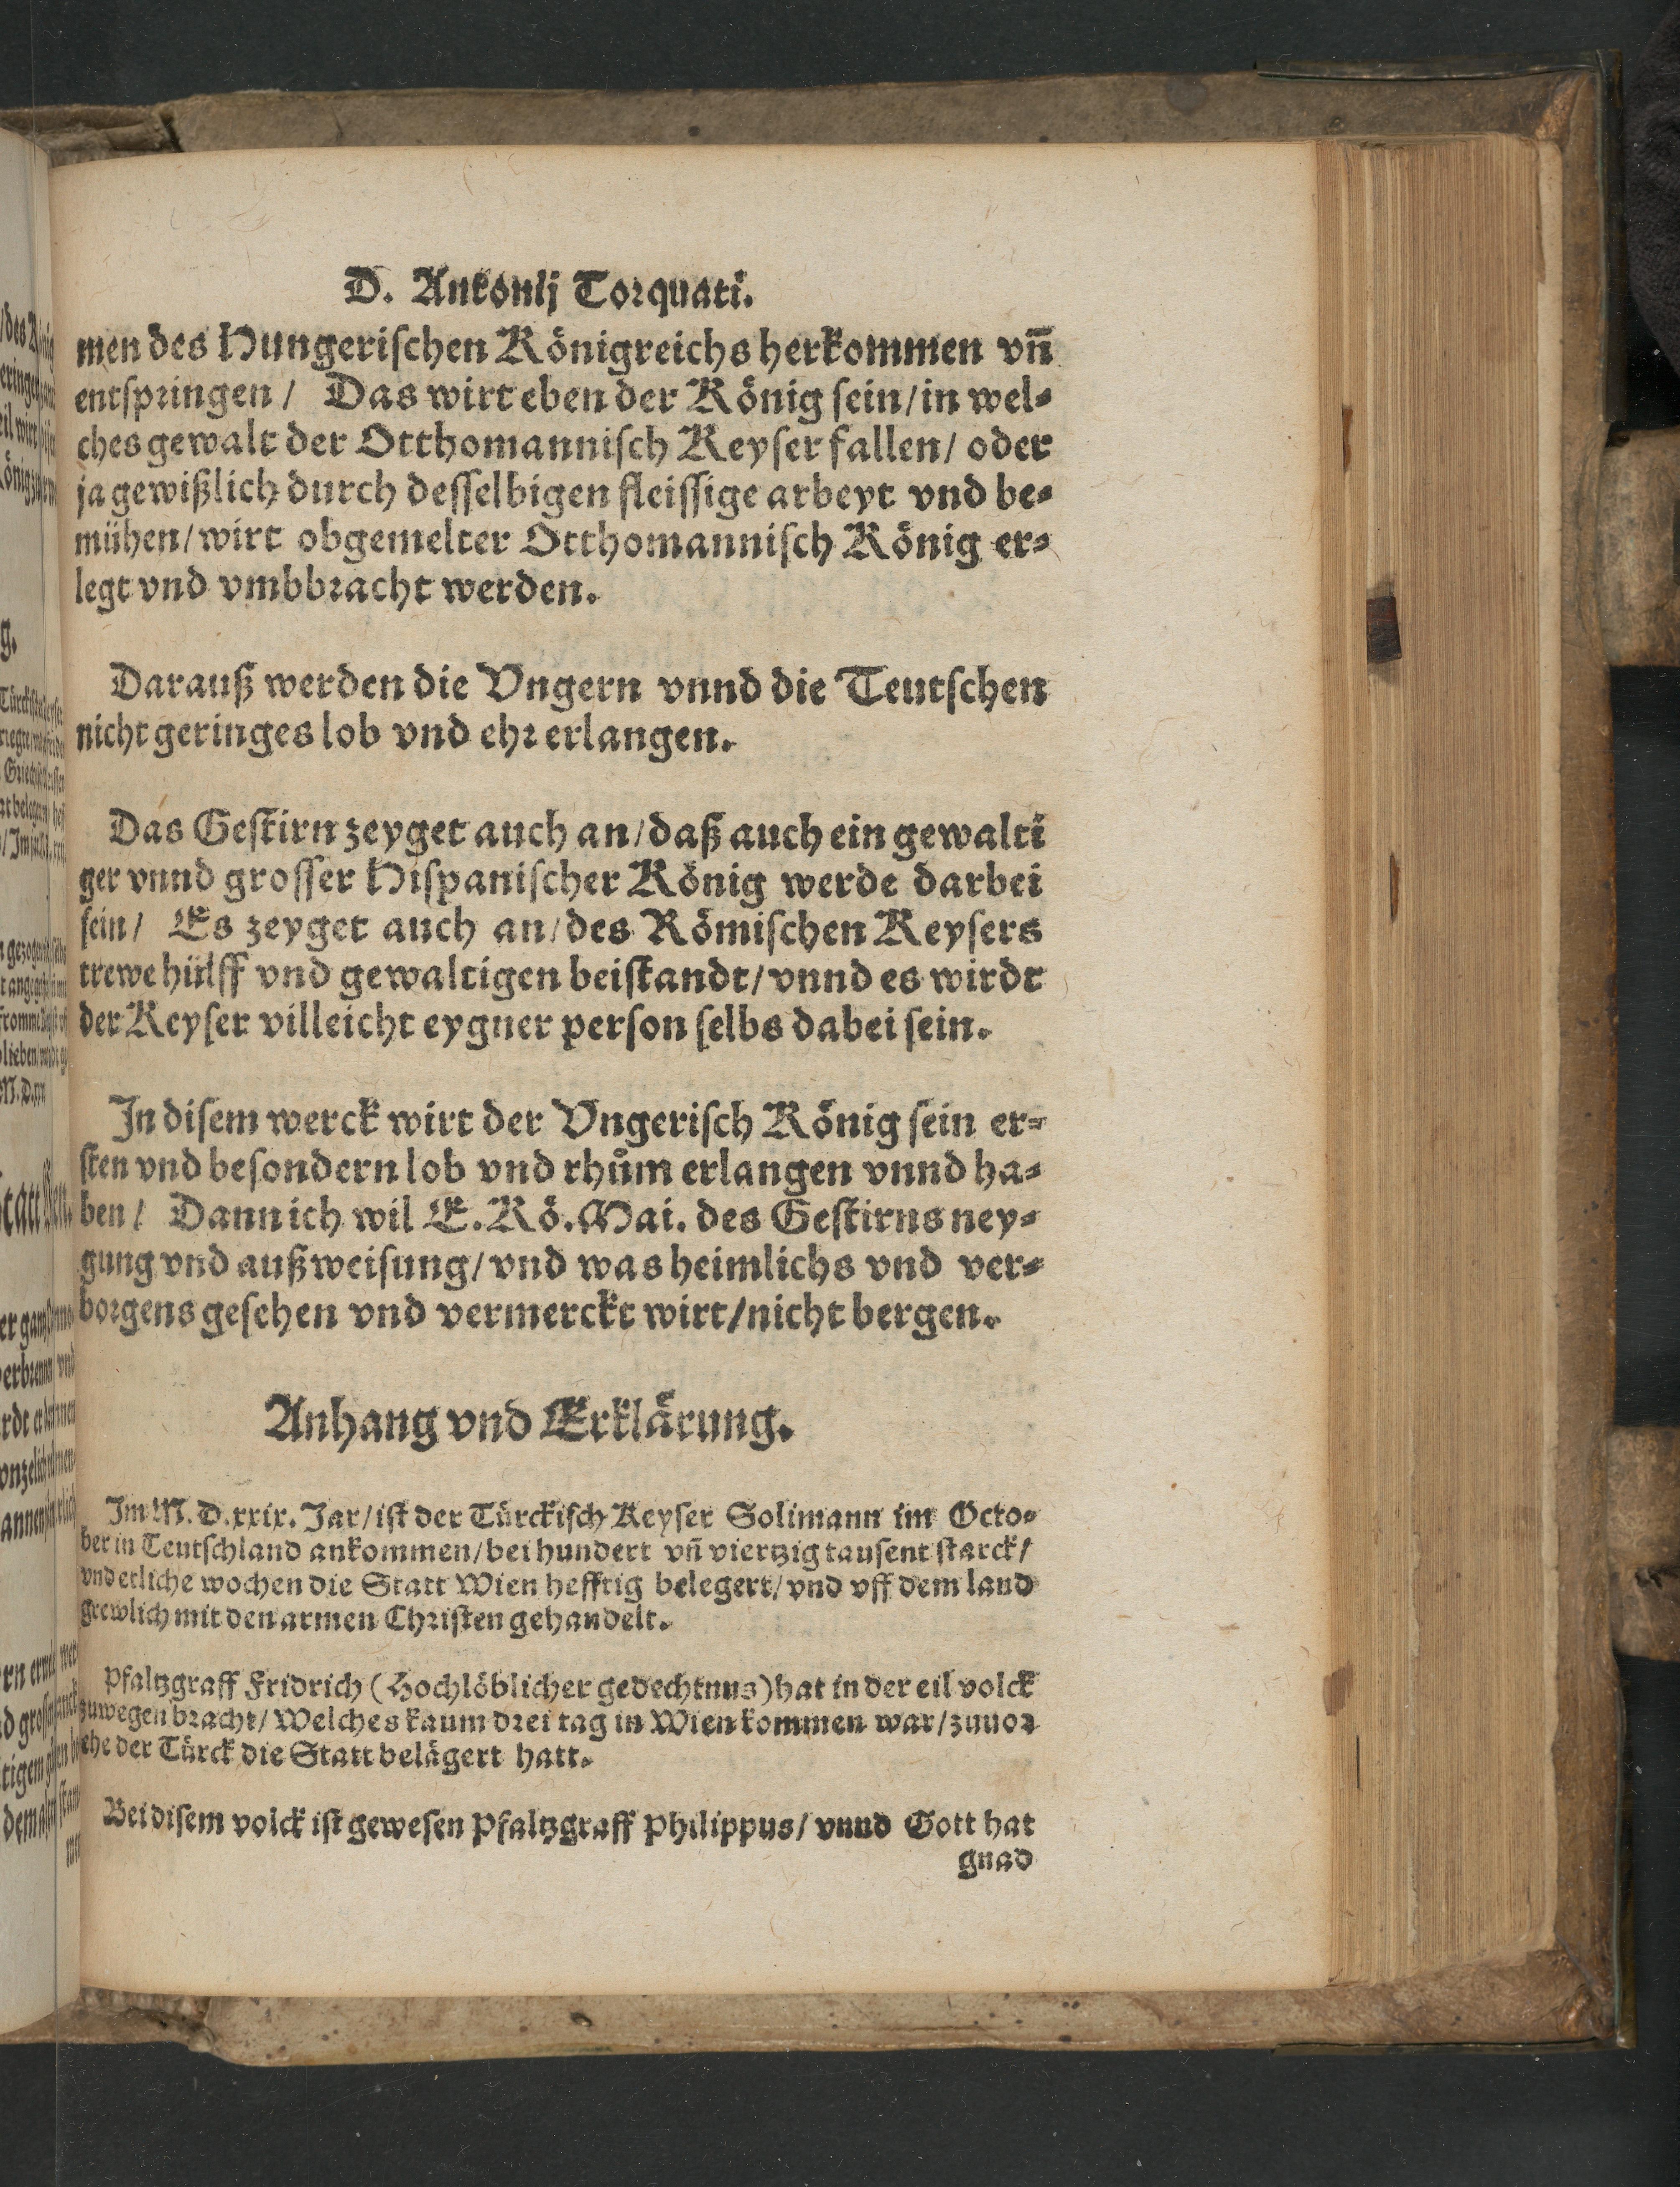 D. Antonij Torquati.
men des Hungerischen Königreichs herkommen vñ
entspringen / Das wirt eben der König sein / in wel⸗
ches gewalt der Otthomannisch Keyser fallen / oder
ja gewißlich durch desselbigen fleissige arbeyt vnd be⸗
mühen / wirt obgemelter Otthomannisch König er⸗
legt vnd vmbbracht werden.
Darauß werden die Vngern vnnd die Teutschen
nicht geringes lob vnd ehr erlangen.
Das Gestirn zeyget auch an / daß auch ein gewalti
ger vnnd grosser Hispanischer König werde darbei
sein / Es zeyget auch an / des Römischen Keysers
trewe hülff vnd gewaltigen beistandt / vnnd es wirdt
der Keyser villeicht eygner person selbs dabei sein.
In disem werck wirt der Vngerisch König sein er⸗
sten vnd besondern lob vnd rhům erlangen vnnd ha⸗
ben / Dann ich wil E. Kö. Mai. des Gestirns ney⸗
gung vnd außweisung / vnd was heimlichs vnd ver⸗
borgens gesehen vnd vermerckt wirt / nicht bergen.
Anhang vnd Erklärung.
Im M. D. xxix. Jar / ist der Türckisch Keyser Solimann im Octo⸗
ber in Teutschland ankommen / bei hundert vñ viertzig tausent starck /
vnd etliche wochen die Statt Wien hefftig belegert / vnd vff dem land
grewlich mit den armen Christen gehandelt.
Pfaltzgraff Fridrich (Hochlöblicher gedechtnus) hat in der eil volck
zuwegen bracht / Welches kaum drei tag in Wien kommen war / zuuor
ehe der Türck die Statt belägert hatt.
Bei disem volck ist gewesen Pfaltzgraff Philippus / vnnd Gott hat
gnad